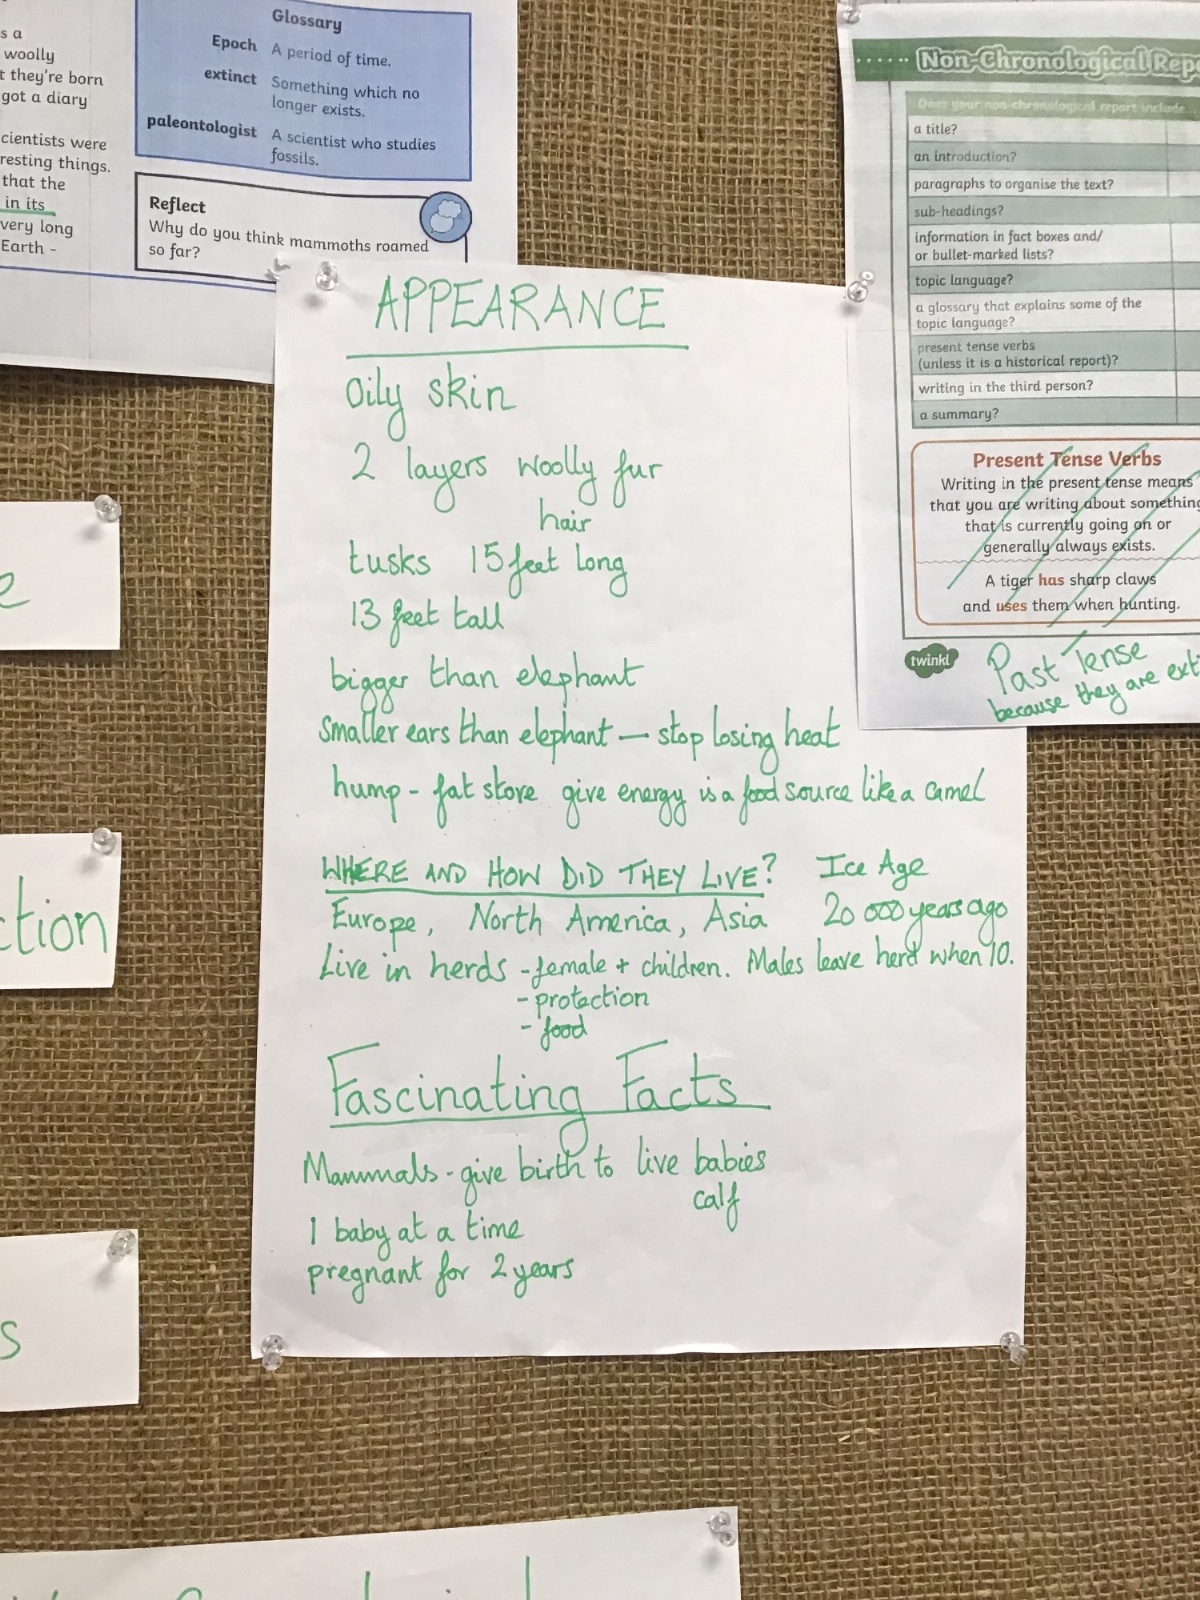 s a
woolly
t they're born
got a diary
cientists were
resting things.
that the
in its
very long
Earth -
Glossary
Epoch A period of time.
extinct Something which no
longer exists.
paleontologist A scientist who studies
fossils.
Reflect
Why do you think mammoths roamed
so far?
APPEARANCE
oily skin
2 layers woolly fur
hair
tusks 15 feet long
13 feet tall
bigger than elephant
smaller ears than elephant — stop losing heat
hump - fat store give energy is a food source like a camel
WHERE AND HOW DID THEY LIVE? Ice Age
Europe, North America, Asia 20 000 years ago
Live in herds - female + children. Males leave herd when 10.
- protection
- food
Fascinating Facts
Mammals - give birth to live babies
calf
1 baby at a time
pregnant for 2 years
Non-Chronological Repo
Does your non-chronological report include...
a title?
an introduction?
paragraphs to organise the text?
sub-headings?
information in fact boxes and/
or bullet-marked lists?
topic language?
a glossary that explains some of the
topic language?
present tense verbs
(unless it is a historical report)?
writing in the third person?
a summary?
Present Tense Verbs
Writing in the present tense means
that you are writing about something
that is currently going on or
generally always exists.
A tiger has sharp claws
and uses them when hunting.
twinkl
Past Tense
because they are exti
e
ction
s